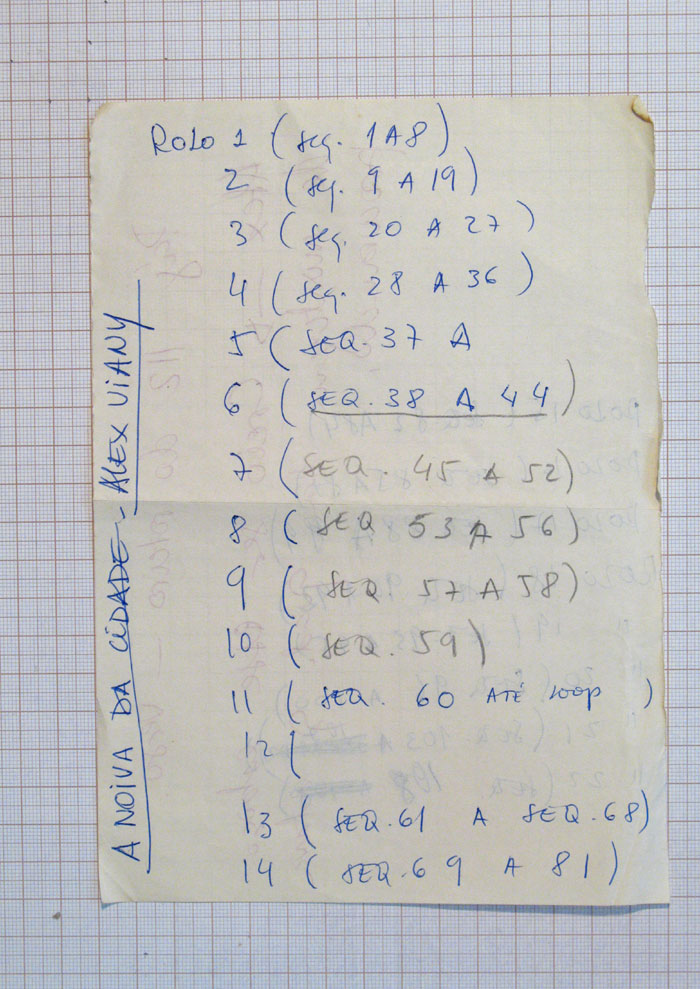 ROLO 1 (seq. 1 A 8)
2 (seq. 9 A 19)
3 (seq. 20 A 27)
4 (seq. 28 A 36)
5 (SEQ. 37 A
6 (SEQ. 38 A 44)
7 (SEQ. 45 A 52)
8 (SEQ 53 A 56)
9 (SEQ 57 A 58)
10 (SEQ. 59)
11 (SEQ. 60 ATÉ LOOP)
12 (
13 (SEQ. 61 A SEQ. 68)
14 (SEQ. 69 A 81)
A NOIVA DA CIDADE - ALEX VIANY